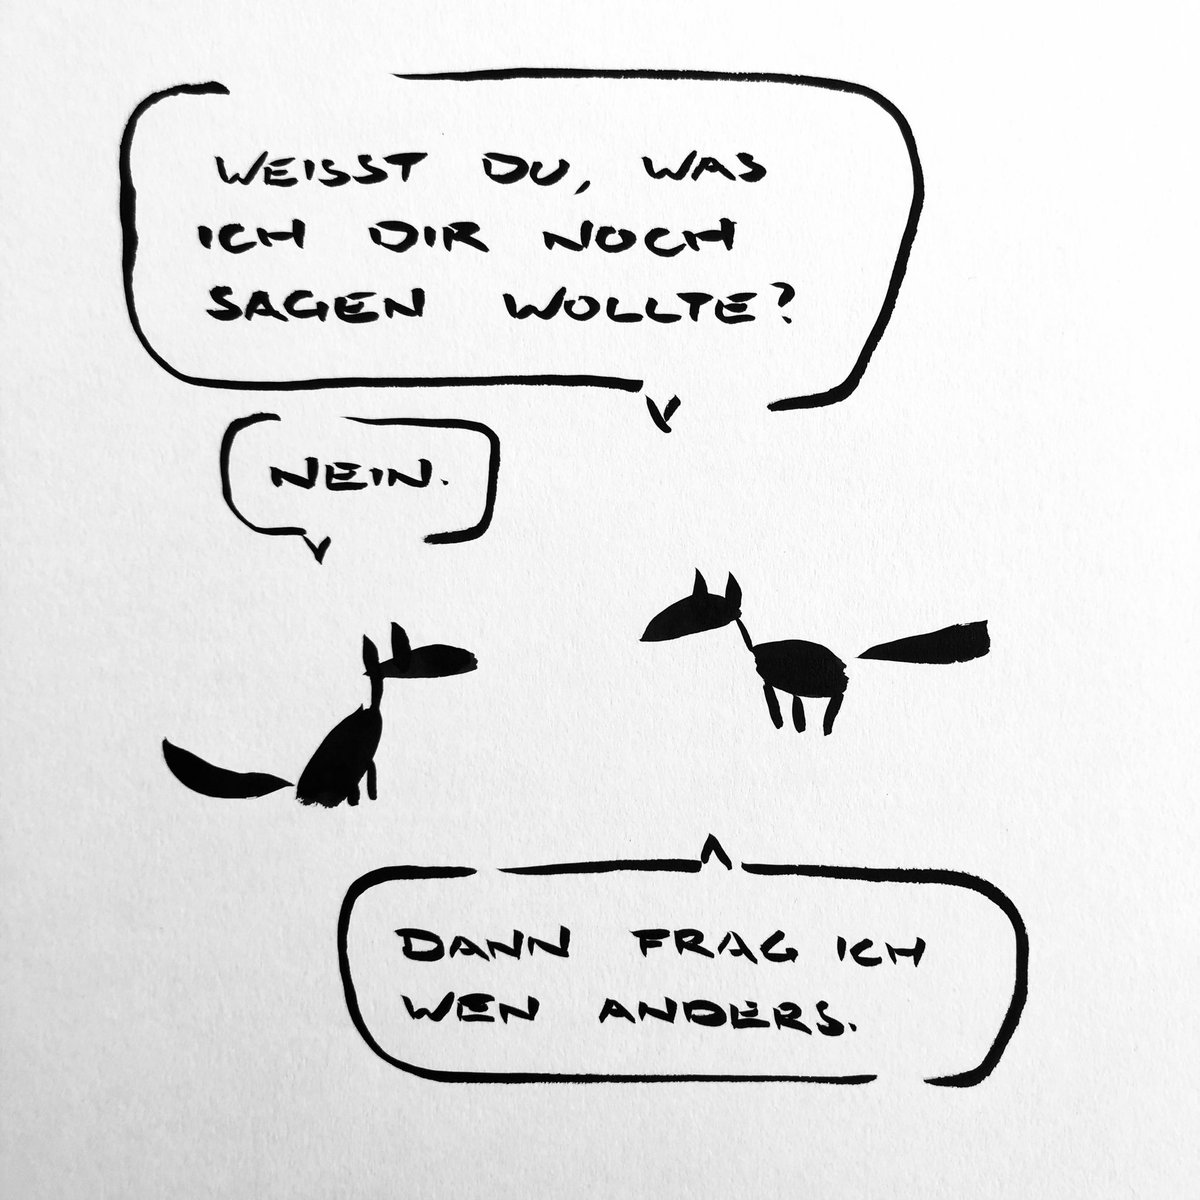 WEISST DU, WAS
ICH DIR NOCH
SAGEN WOLLTE?
NEIN.
DANN FRAG ICH
WEN ANDERS.